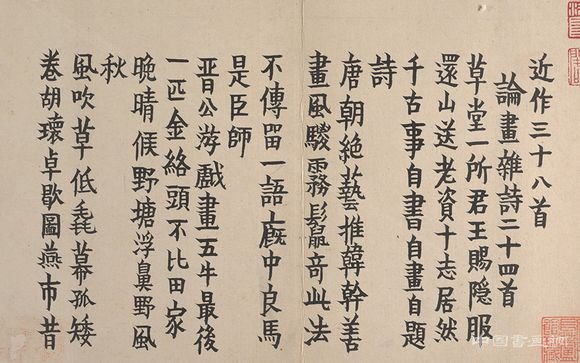 近作三十八首
論畫雜詩二十四首
草堂一所君王賜隐服
還山送老資十志居然
千古事自書自畫自題
詩
唐朝絶藝推韓幹善
畫風騣霧鬛奇此法
不傳留一語廐中良馬
是臣師
晋公游戲畫五牛最後
一匹金絡頭不比田家
晚晴候野塘浮鼻野風
秋
風吹草低毳幕孤矮
卷胡瓌卓歇圖燕市昔
中国書画網